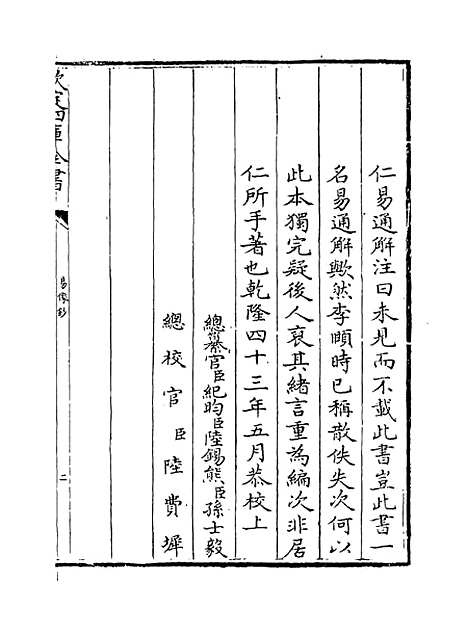 仁易通解注曰未見而不載此書豈此書一
名易通解歟然李頥時已稱散佚失次何以
此本獨完疑後人裒其緒言重為編次非居
仁所手著也乾隆四十三年五月恭校上
總纂官臣紀昀臣陸錫熊臣孫士毅
總校官臣陸費墀
欽定四庫全書
易像鈔
二